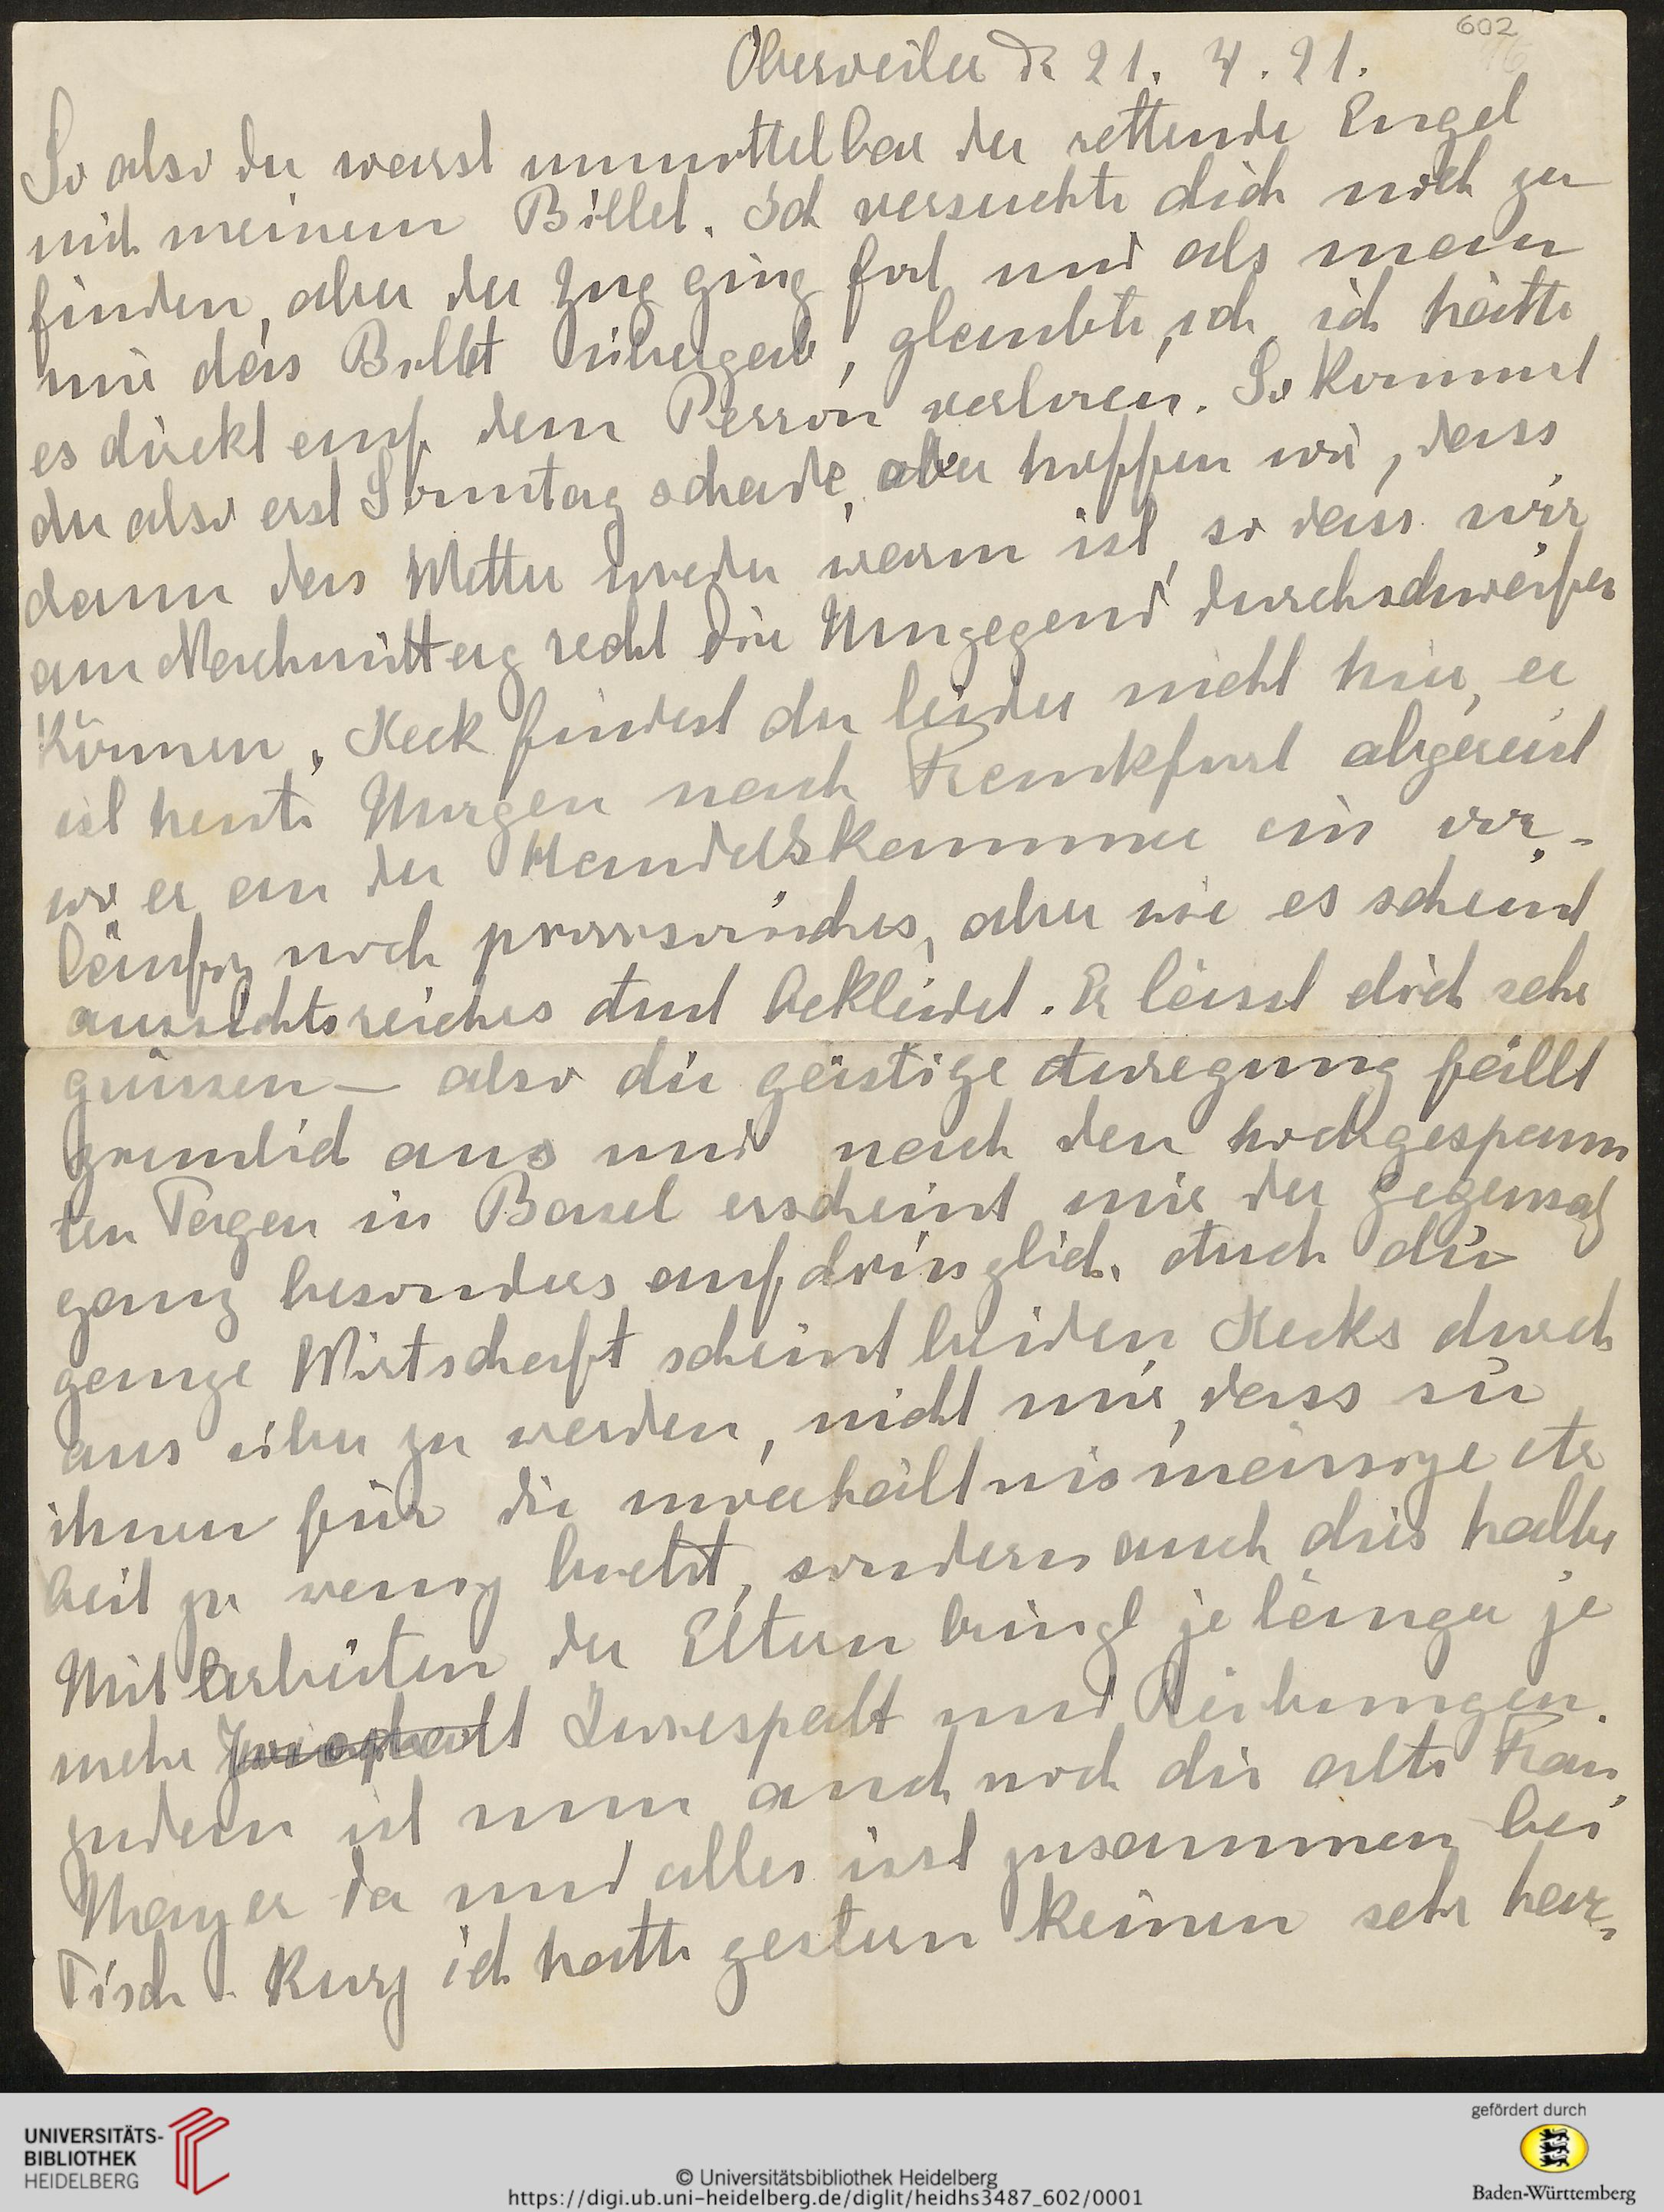 602
Oberweiler d. 21. 4. 21.
So also du warst unmittelbar der rettende Engel
mit meinem Billet. Ich versuchte dich noch zu
finden, aber der Zug ging fort und als man
mir das Billet übergab, glaubte ich, ich hätte
es direkt auf dem Perron verloren. So kommst
du also erst Sonntag schade, aber hoffen wir, dass
dann das Wetter wieder warm ist, so dass wir
am Nachmittag recht die Umgegend durchschweifen
können. Keck findest du leider nicht hier, er
ist heute Morgen nach Frankfurt abgereist
wo er an der Handelskammer ein vor-
läufig noch provisorisches, aber wie es scheint
aussichtsreiches Amt bekleidet. Er lässt dich sehr
grüssen – also die geistige Anregung fällt
ziemlich aus und nach den hochgespann
ten Tagen in Basel erscheint mir der Gegensatz
ganz besonders aufdringlich. Auch die
ganze Wirtschaft scheint beiden Kecks durch
aus über zu werden, nicht nur, dass sie
ihnen für die unverhältnismässige Ar
beit zu wenig bietet, sondern auch dies halbe
Mitarbeiten der Eltern bringt je länger je
mehr Zwiespalt Zwiespalt und Reibungen.
zudem ist nun auch noch die alte Frau
Mayer da und alles isst zusammen bei
Tisch. Kurz ich hatte gestern keinen sehr har-
UNIVERSITÄTS-
BIBLIOTHEK
HEIDELBERG
© Universitätsbibliothek Heidelberg
https://digi.ub.uni-heidelberg.de/diglit/heidhs3487_602/0001
gefördert durch
Baden-Württemberg